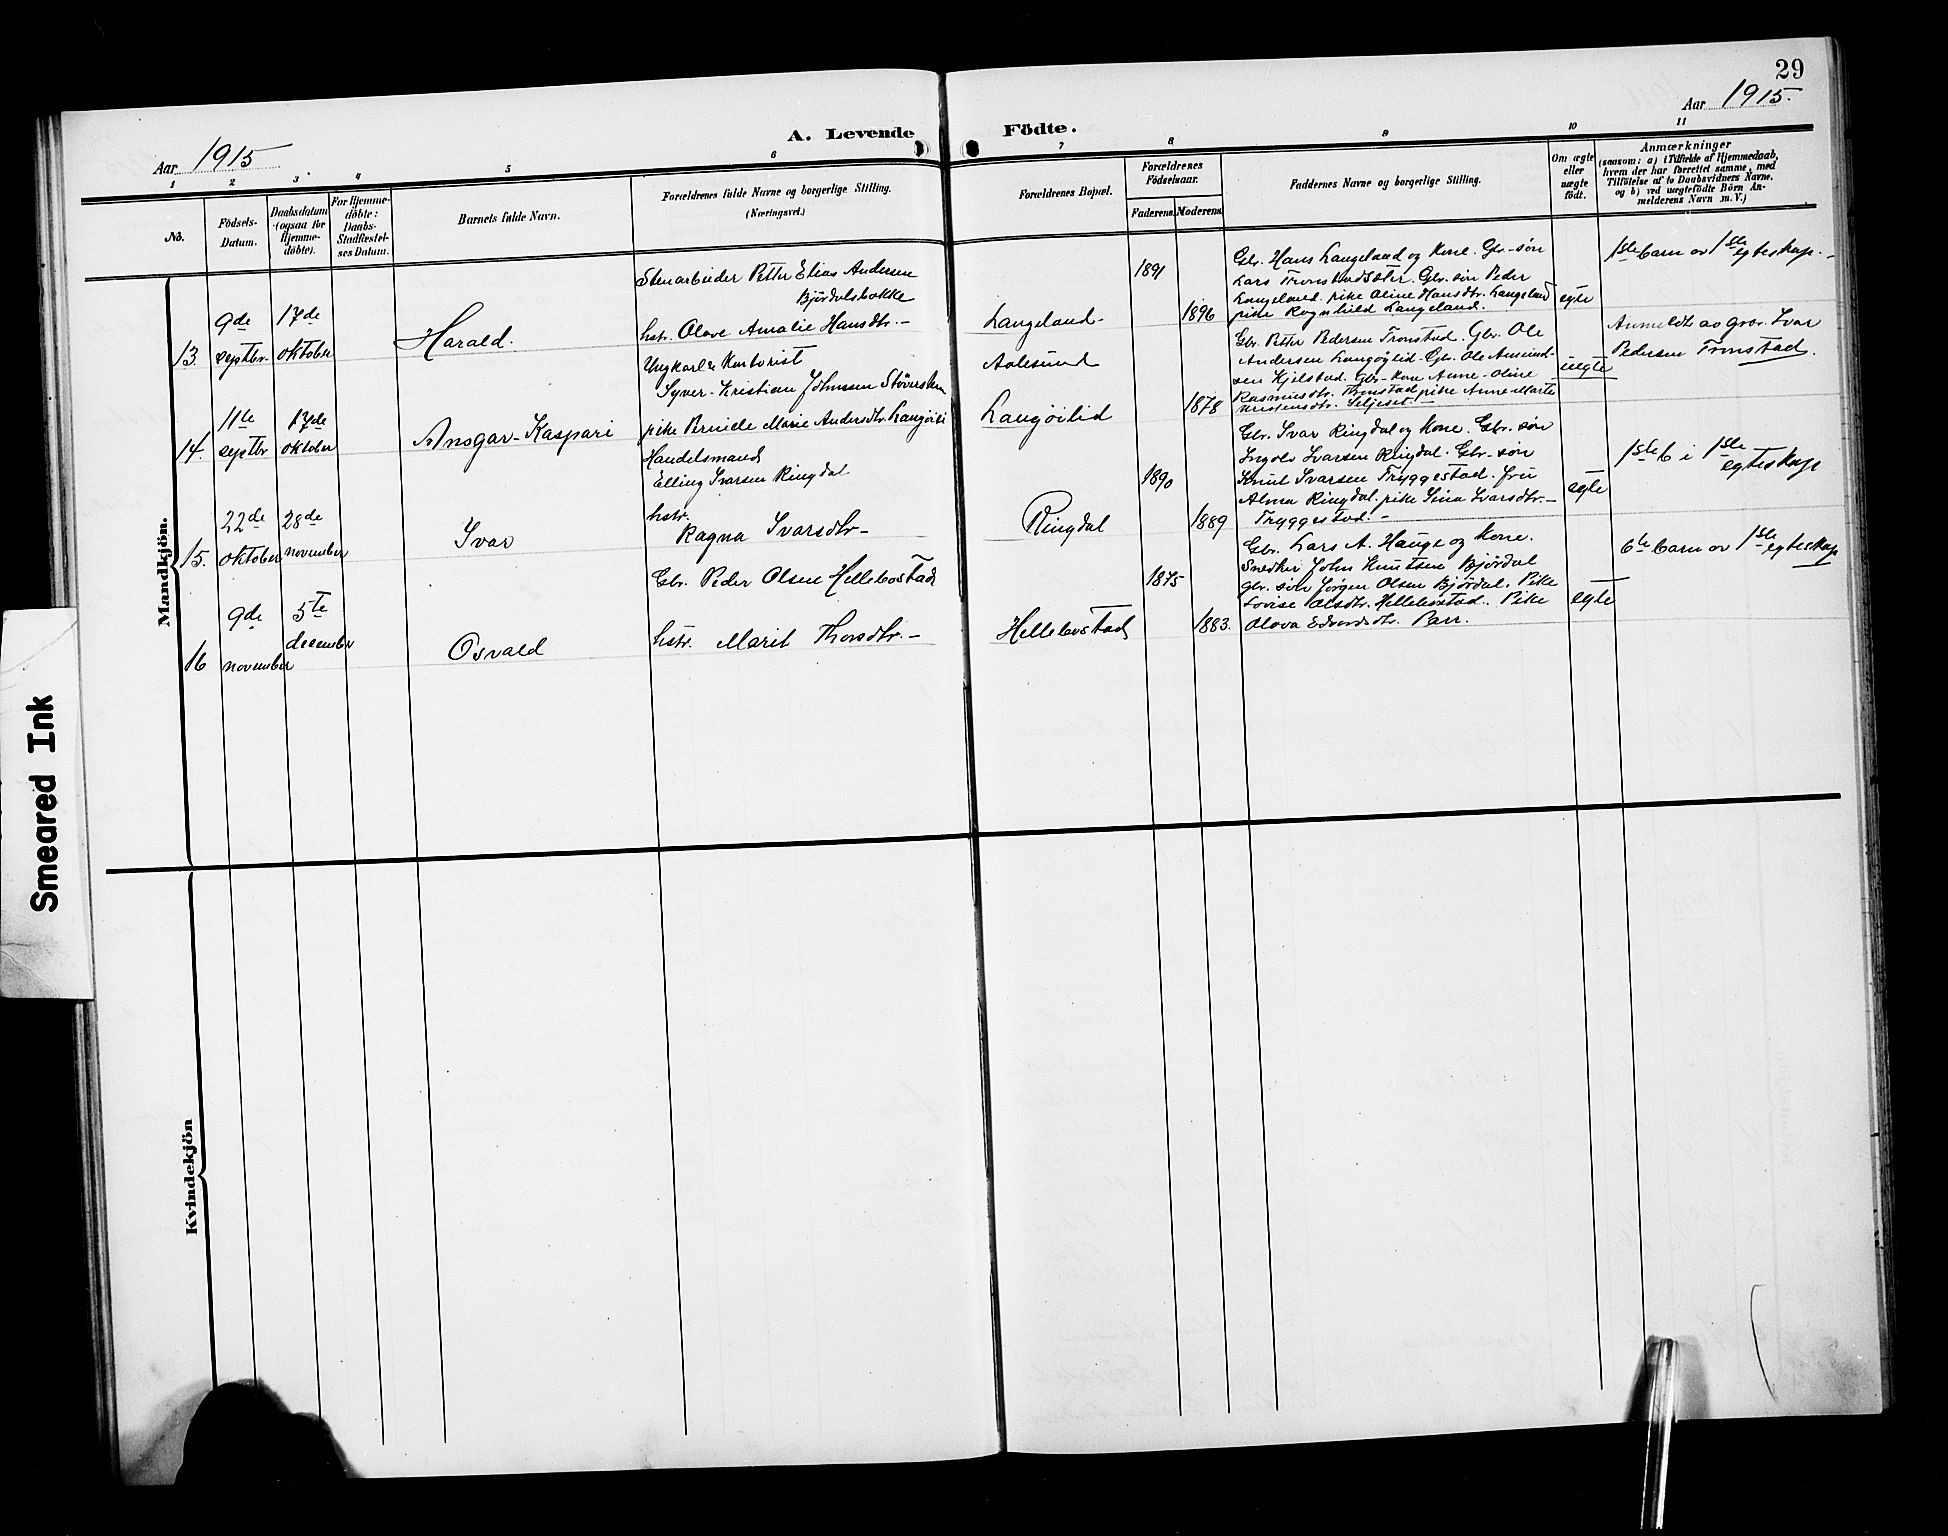 29
Aar 1915.
Aar 1915
A. Levende
Födte.
1
2
3
4
5
6
7
8
9
10
11
No.
Födsels-
Datum.
Daabsdatum
(ogsaa for
Hjemme-
döbte).
For Hjemme-
döbte:
Daabs-
Stadfæstel-
ses Datum.
Barnets fulde Navn.
Forældrenes fulde Navne og borgerlige Stilling.
(Næringsvei.)
Forældrenes Bopæl.
Forældrenes
Födselsaar.
Faderens.
Moderens.
Faddernes Navne og borgerlige Stilling.
Om ægte
eller
uægte
födt.
Anmærkninger
(saasom: a) i Tilfælde af Hjemmedaab,
hvem der har forrettet samme, med
Tilföielse af to Daabsvidners Navne,
og b) ved uægtefödte Börn An-
melderens Navn m. V.)
Mandkjön.
13
9de
septbr
17de
oktober
Harald.
Stenarbeider Petter Elias Andersen
Bjørdalsbakke
hstr. Olave Amalie Hansdtr. -
Langeland-
1891
1896
Gbr. Hans Langeland og Kone. Gbr-søn
Lars Tronstadsæter. Gbr. søn Peder
Langeland. pike Oline Hansdtr. Langeland
pike Ragnhild Langeland.
egte
1ste barn av 1ste egteskap. -
14.
11te
septbr
17de
oktober
Ansgar-Kaspari
Ungkarl & Kontorist
Syver-Kristian Johnsen
pike Pernille Marie Andersdtr. Langøili
Aalesund
Langøilid
1878
Gbr. Petter Pedersen Tronstad. Gbr. Ole
Andersen Langøylid. Gbr. Ole Amund-
sen Kjelstad. Gbr-kone Anne-Oline
Rasmusdtr. Tronstad, pike Anne-Marte
Seljeset. -
uegte
Anmeldt av grv. Ivar
Pedersen Tronstad.
15.
22de
oktober
28de
november
Ivar
Handelsmand
Elling Ivarsen Ringdal
hstr.
Ragna Ivarsdtr-
Ringdal
1890
1889
Gbr. Ivar Ringdal og Kone. Gbr. søn
Ingolv Ivarsen Ringdal. Gbr-søn
Knut Ivarsen Tryggestad. fru
Alma Ringdal. pike Sina Ivarsdtr.-
Tryggestad. -
egte
1ste b i 1ste
egteskap
16
9de
november
5te
december
Osvald
Gbr. Peder Olsen Hellebostad
hstr. Marit Thorsdtr. -
Hellebostad
1875
1883.
Gbr. Lars A. Hauge og Kone.
Snedker John Knutsen Bjørdal
gbr. søn Jørgen Olsen Bjørdal. Pike
Lovise Olsdtr. Hellebostad. Pike
Olava Edvardsdtr. Parr.
egte
6te barn av 1ste
egteskap
Kvindekjön
Smeared Ink